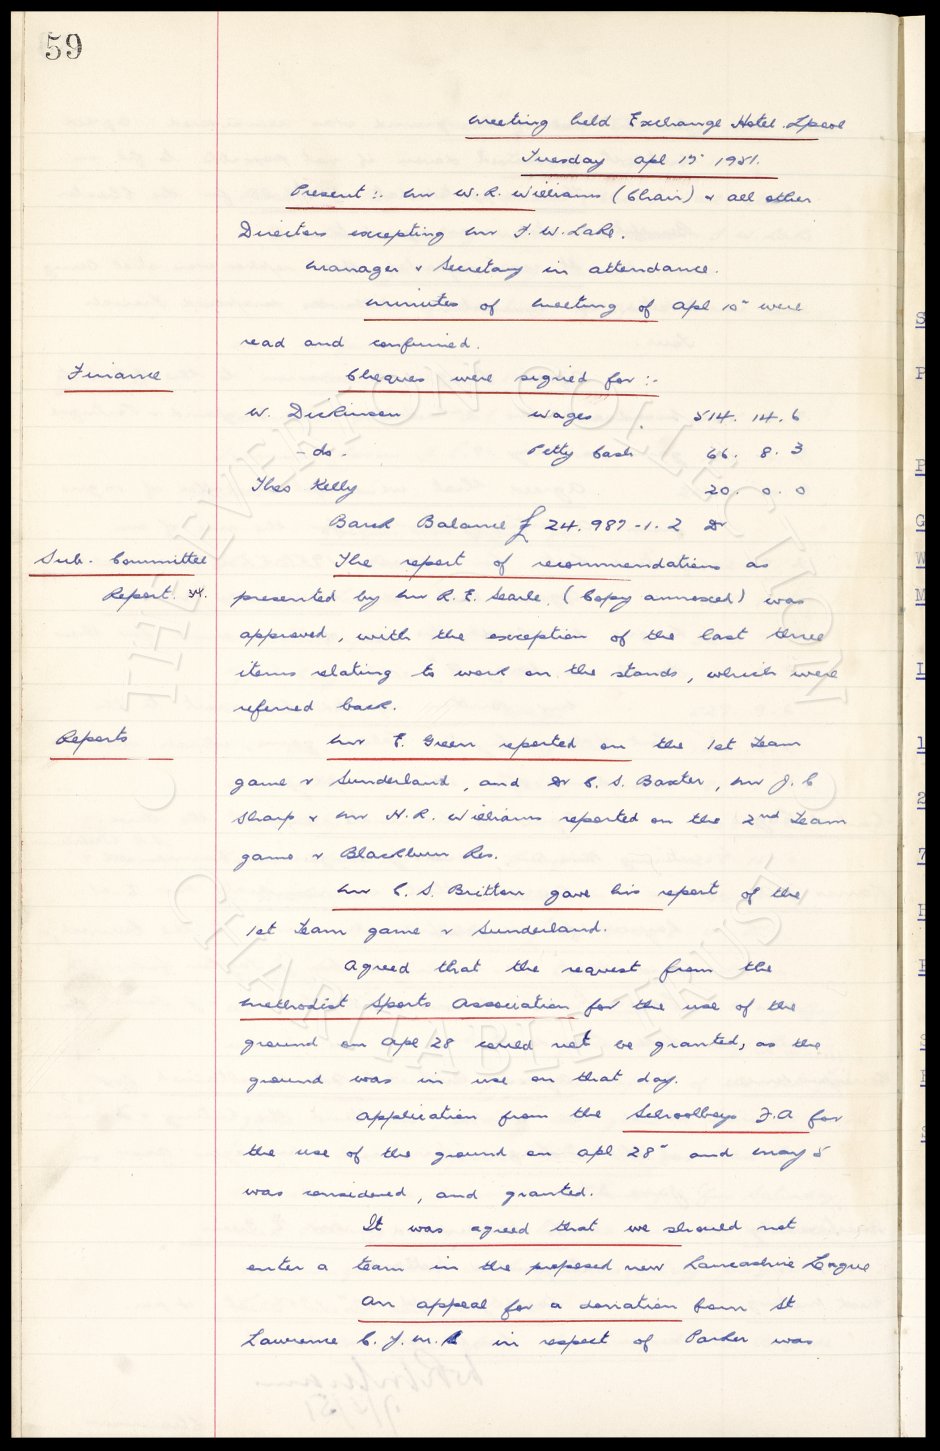 59
Meeting held Exchange Hotel. Lpool
Tuesday Apl 17th 1951.
Present :- Mr W. R. Williams (Chair) & all other
Directors excepting Mr F. W. Lake.
Manager & Secretary in attendance.
Minutes of Meeting of Apl 10th were
read and confirmed.
Finance
Cheques were signed for :-
W. Dickinson Wages 514. 14. 6
- do. Petty Cash 66. 8. 3
Thos Kelly 20. 0. 0
Bank Balance £ 24.987-1.2 Dr
Sub. Committee
Report.
The report of recommendations as
presented by Mr R. E. Searle, (Copy annexed) was
approved, with the exception of the last three
items relating to work on the stands, which were
referred back.
Reports
Mr E. Green reported on the 1st Team
game v Sunderland, and Dr C. S. Baxter, Mr J. C
Sharp & Mr N. R. Williams reported on the 2nd Team
game v Blackburn Res.
Mr C. S. Britton gave his report of the
1st Team game v Sunderland.
Agreed that the request from the
Methodist Sports Association for the use of the
ground on Apl 28 could not be granted, as the
ground was in use on that day.
Application from the Schoolboys F.A for
the use of the ground on Apl 28th and May 5
was considered, and granted.
It was agreed that we should not
enter a team in the proposed new Lancashire League
An appeal for a donation from St
Lawrence C. F. M. C in respect of Parker was
THE EVERTON COLLECTION
CHARITABLE TRUST
S
P
P
G
W
M
L
1
2
7